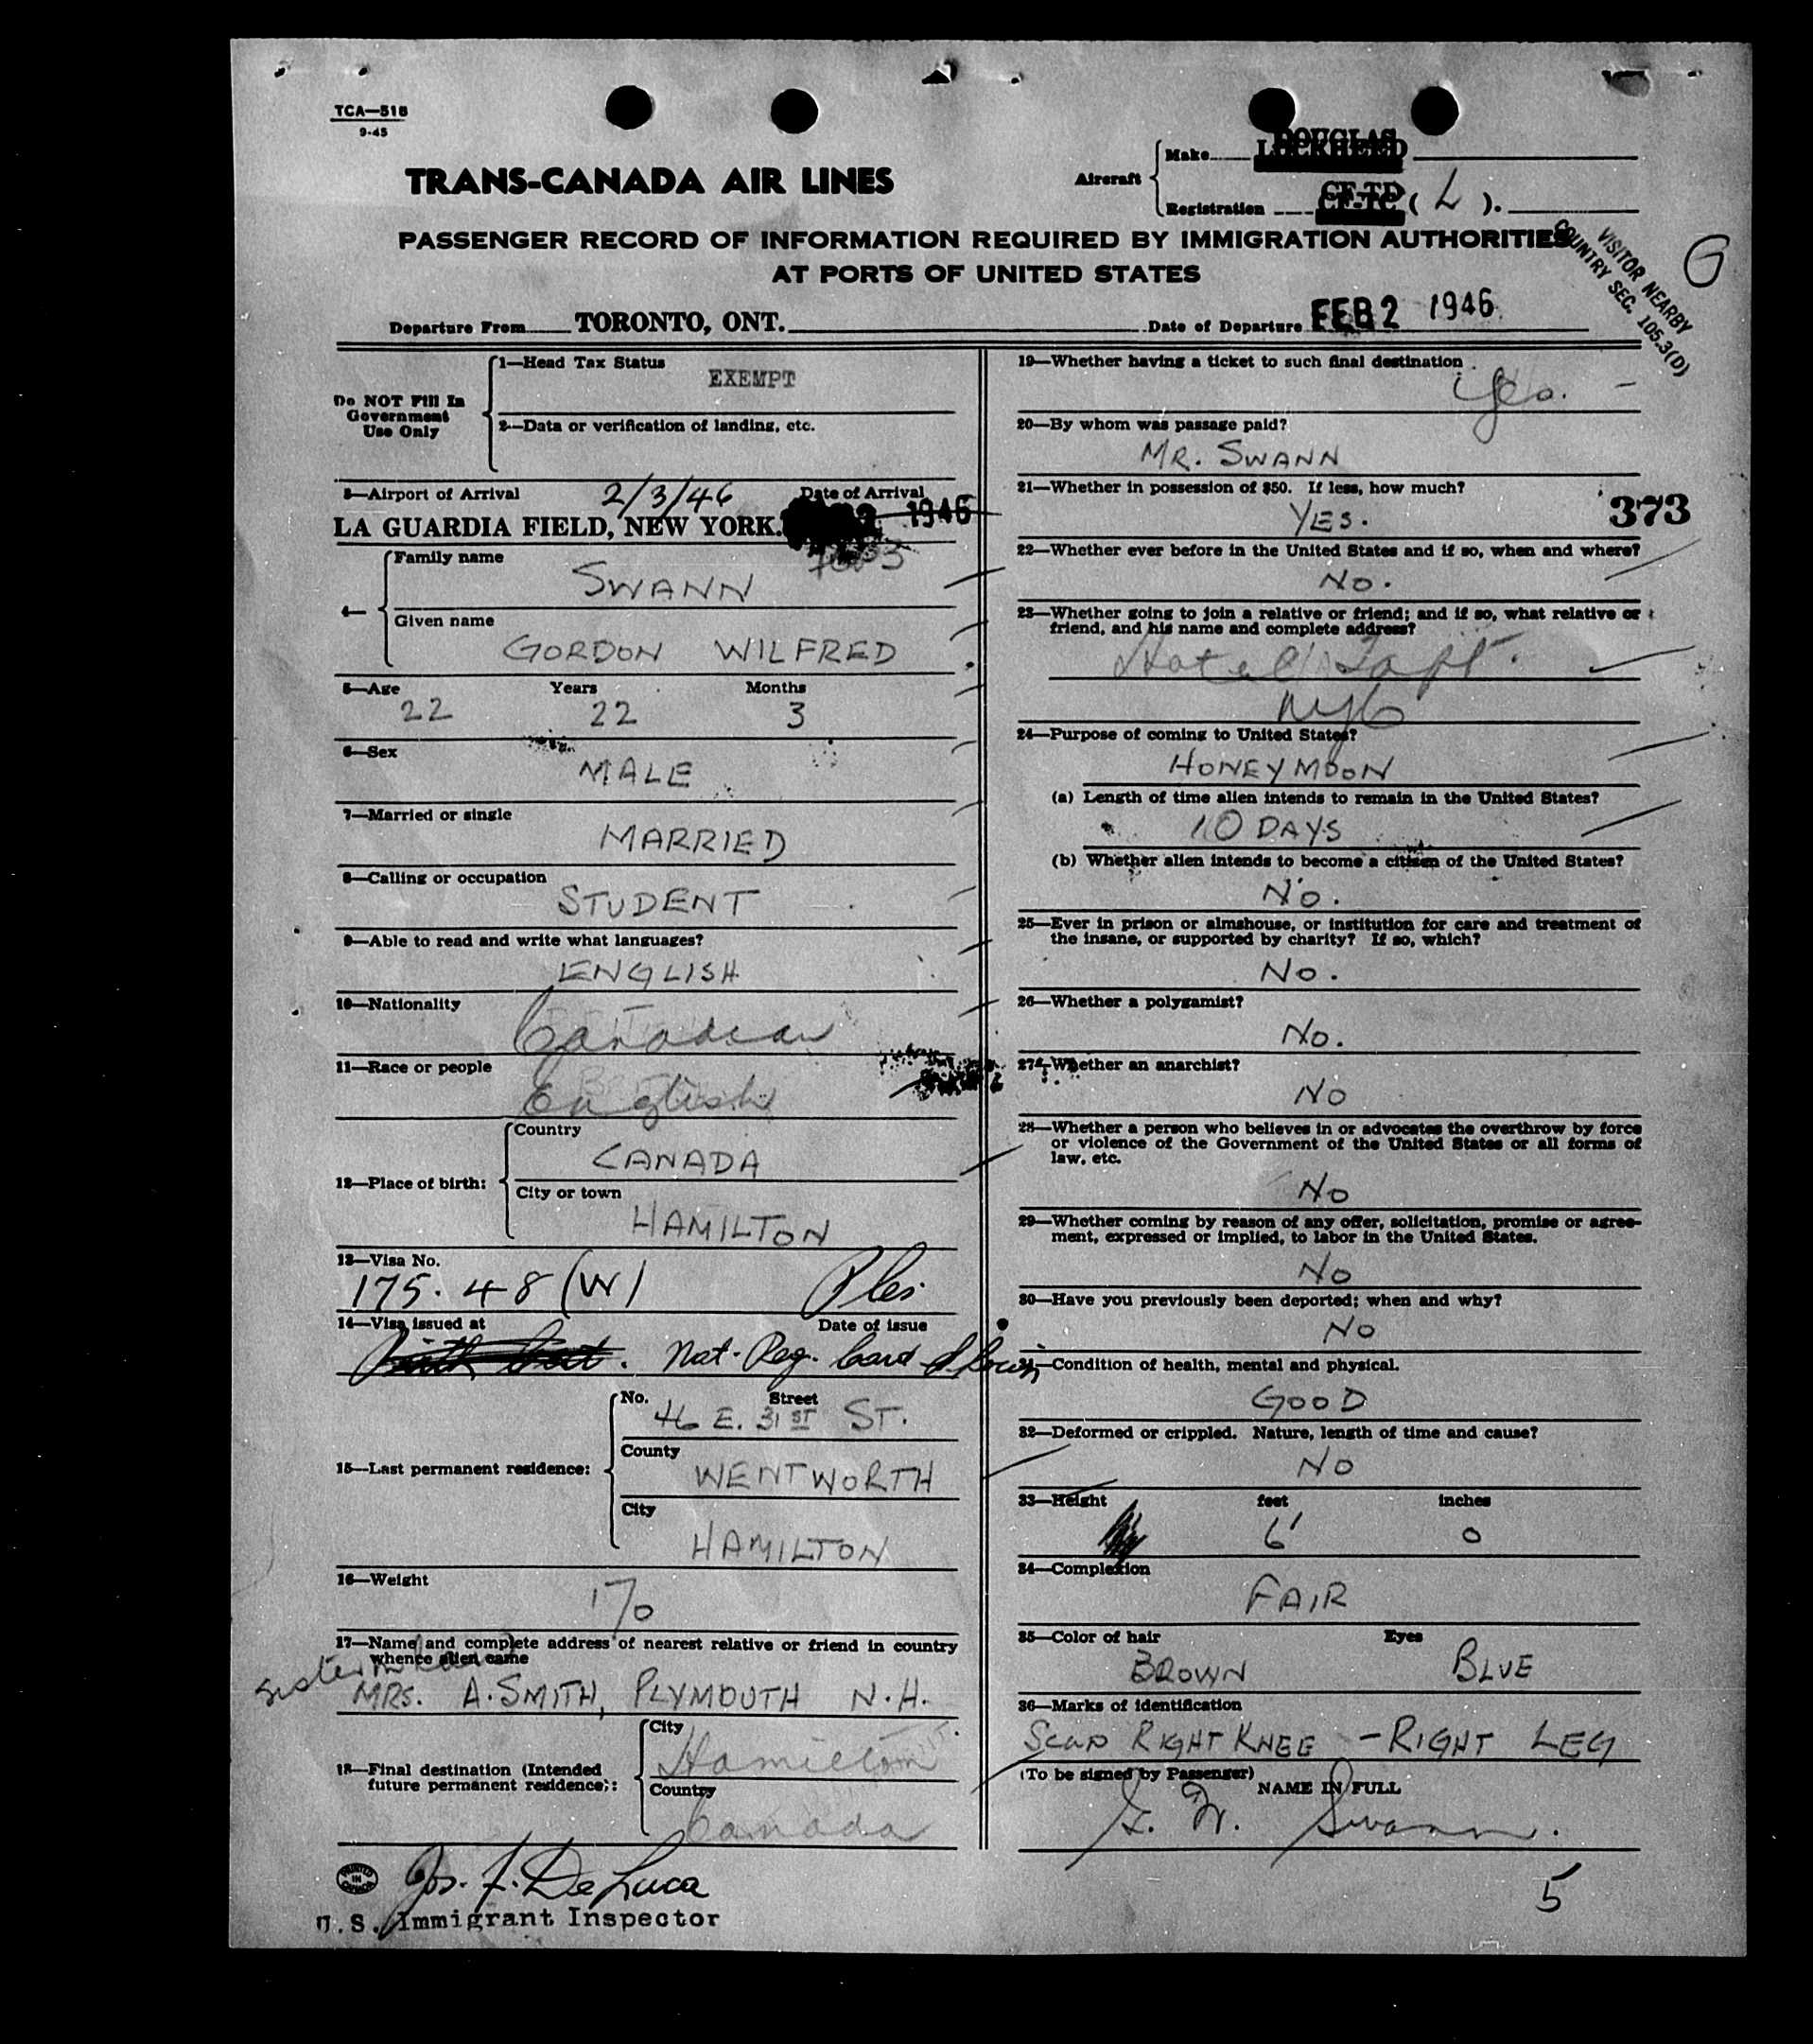 TCA—518
9-45
TRANS-CANADA AIR LINES
Aircraft
Make DOUGLAS LOCKHEED
Registration CF-TD CF-TC ( L ).
PASSENGER RECORD OF INFORMATION REQUIRED BY IMMIGRATION AUTHORITIES
AT PORTS OF UNITED STATES
VISITOR NEARBY
COUNTRY SEC. 105.3(D)
G
Departure From TORONTO, ONT. Date of Departure FEB 2 1946
Do NOT Fill In
Government
Use Only
1—Head Tax Status
EXEMPT
2—Data or verification of landing, etc.
3—Airport of Arrival 2/3/46 Date of Arrival
LA GUARDIA FIELD, NEW YORK. 2 1946
Feb 3
4—
Family name
SWANN
Given name
GORDON WILFRED
5—Age Years Months
22 22 3
6—Sex
MALE
7—Married or single
MARRIED
8—Calling or occupation
STUDENT
9—Able to read and write what languages?
ENGLISH
10—Nationality
Canadian
11—Race or people
English
12—Place of birth:
Country
CANADA
City or town
HAMILTON
13—Visa No.
175.48 (W)
14—Visa issued at Date of issue
Birth Cert. Nat. Reg. Card
15—Last permanent residence:
No. Street
46 E. 31ST ST.
County
WENTWORTH
City
HAMILTON
16—Weight
170
17—Name and complete address of nearest relative or friend in country
whence alien came
sister in law
MRS. A. SMITH, PLYMOUTH N.H.
18—Final destination (Intended
future permanent residence):
City
Hamilton
Country
Canada
PRINTED IN CANADA
Jos. F. De Luca
U.S. Immigrant Inspector
19—Whether having a ticket to such final destination
Yes.
20—By whom was passage paid?
MR. SWANN
21—Whether in possession of $50. If less, how much?
YES.
373
22—Whether ever before in the United States and if so, when and where?
NO.
23—Whether going to join a relative or friend; and if so, what relative or
friend, and his name and complete address?
Hotel Taft.
NYC
24—Purpose of coming to United States?
HONEYMOON
(a) Length of time alien intends to remain in the United States?
10 DAYS
(b) Whether alien intends to become a citizen of the United States?
NO.
25—Ever in prison or almshouse, or institution for care and treatment of
the insane, or supported by charity? If so, which?
NO.
26—Whether a polygamist?
NO.
27—Whether an anarchist?
NO
28—Whether a person who believes in or advocates the overthrow by force
or violence of the Government of the United States or all forms of
law, etc.
NO
29—Whether coming by reason of any offer, solicitation, promise or agree-
ment, expressed or implied, to labor in the United States.
NO
30—Have you previously been deported; when and why?
NO
31—Condition of health, mental and physical.
GOOD
32—Deformed or crippled. Nature, length of time and cause?
NO
33—Height feet inches
6' 0
34—Complexion
FAIR
35—Color of hair Eyes
BROWN BLUE
36—Marks of identification
RIGHT KNEE — RIGHT LEG
(To be signed by Passenger)
NAME IN FULL
G. W. Swann.
5